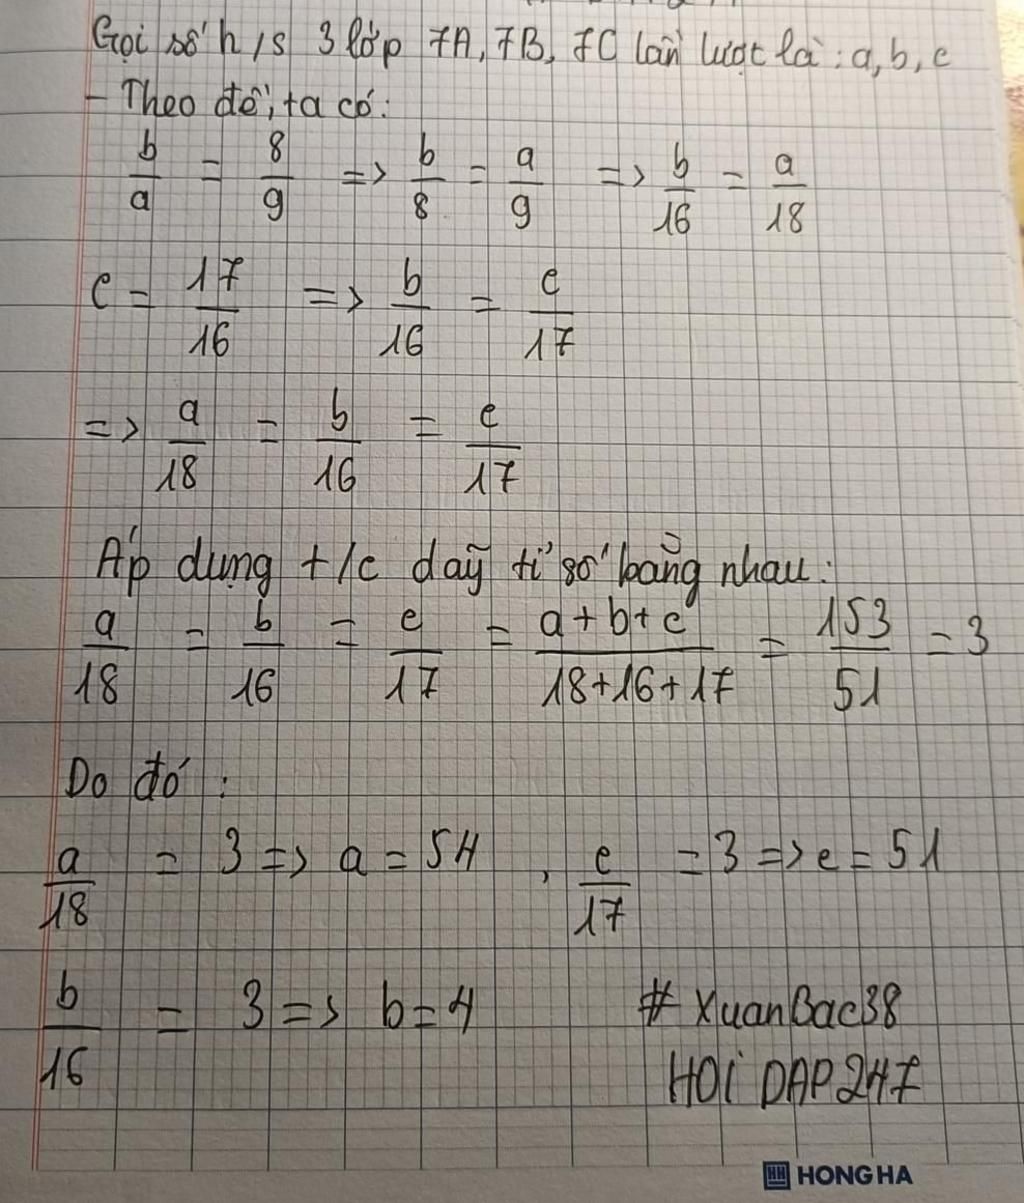 Gọi số h/s 3 lớp 7A, 7B, 7C lần lượt là: a, b, c
- Theo đề, ta có:
b/a = 8/9 => b/8 = a/9 => b/16 = a/18
c = 17/16 => b/16 = c/17
=> a/18 = b/16 = c/17
Áp dụng t/c dãy tỉ số bằng nhau:
a/18 = b/16 = c/17 = a+b+c/18+16+17 = 153/51 = 3
Do đó:
a/18 = 3 => a = 54, c/17 = 3 => c = 51
b/16 = 3 => b = 4
# XuanBac38
HOI DAP 247
HH HONG HA